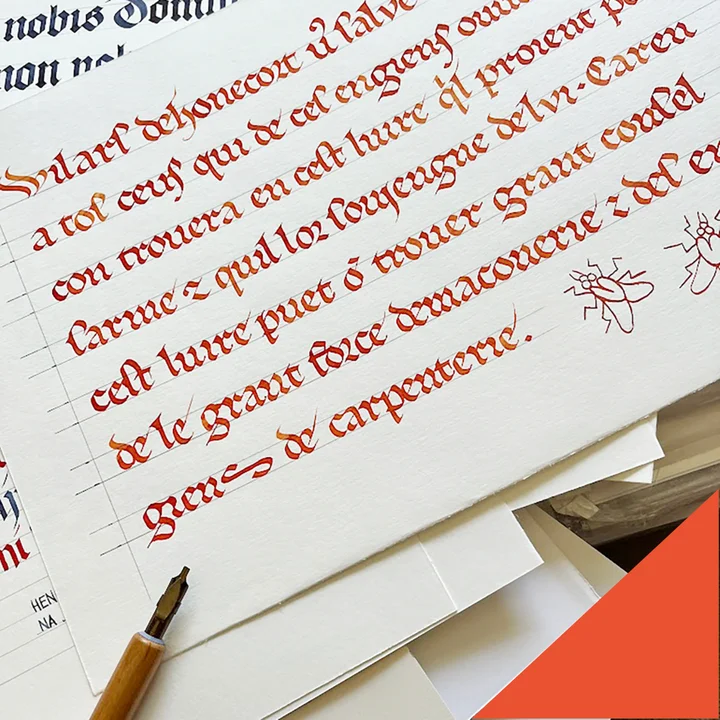 nobis Domin
non nob
Wilarſ dehonecort ú ſalve
a toſ ceuſ qui de ceſ engienſ
con trouera en ceſt liure q̓l proient
ſarme ⁊ quil loꝛ ſoujengne delvi. Caren
ceſt liure puet ō trouer grant conſel
de le grant force demaconerie ⁊ deſ en
giens de carpenterie.
HEN
NA